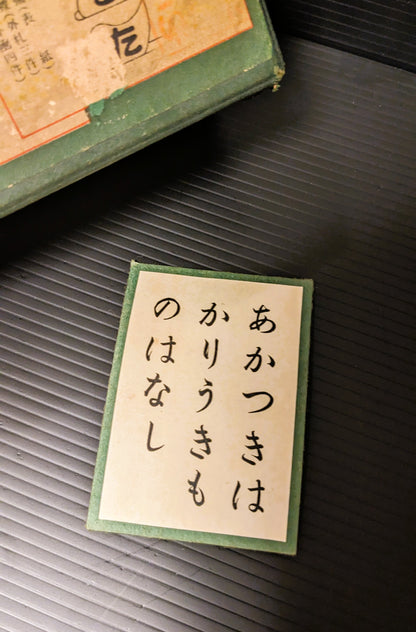 あかつきは
かりうきも
のはなし
た